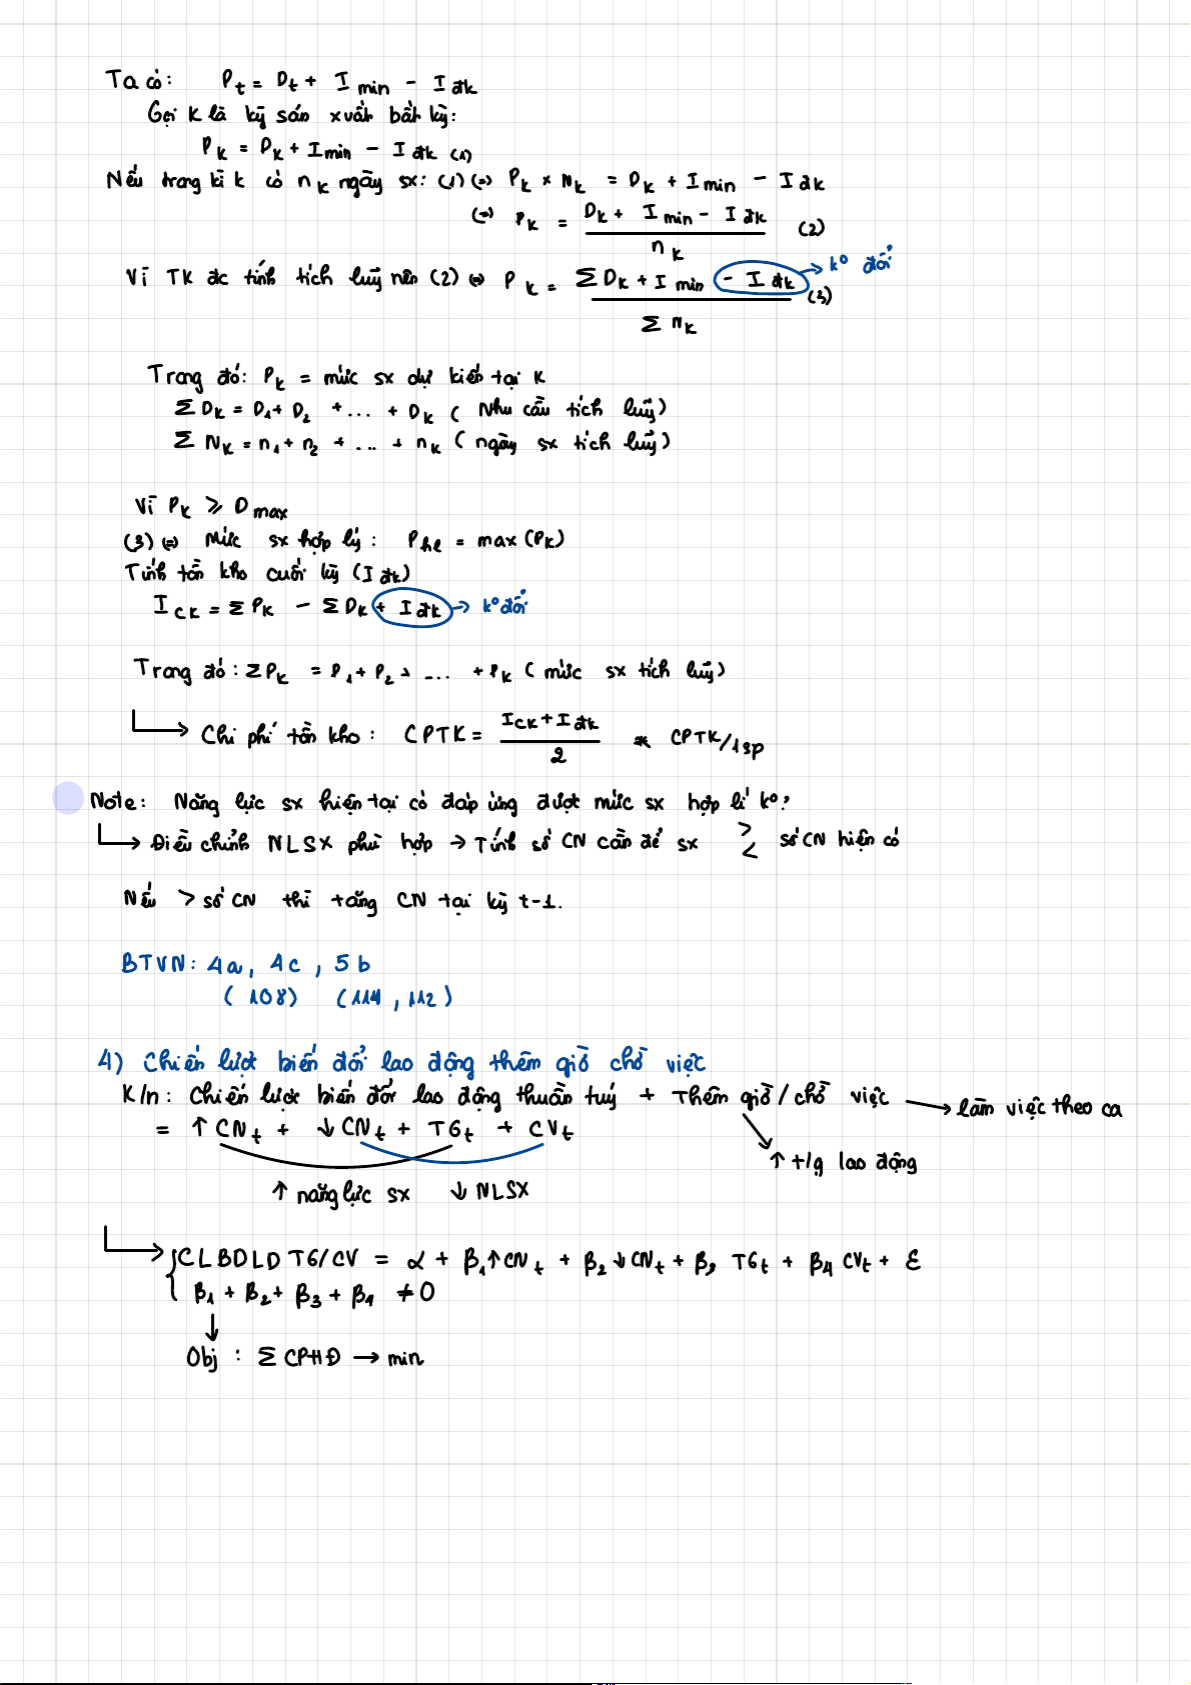 Ta có: Pt = Dt + I min - I đk
Gọi K là kỳ sản xuất bất kỳ:
Pk = Dk + Imin - I đk (1)
Nếu trong kì k có nk ngày sx: (1) (=) Pk x Nk = Dk + Imin - I đk
(=) Pk = (Dk + I min - I đk) / nk (2)
Vì TK đc tính tích luỹ nên (2) (=) Pk = (ΣDk + I min - I đk) / ΣNk (3) → k° đổi
Trong đó: Pk = mức sx dự kiến tại K
ΣDk = D1 + D2 + ... + Dk ( Nhu cầu tích luỹ)
ΣNk = n1 + n2 + ... + nk ( ngày sx tích luỹ)
Vì Pk ⩾ Dmax
(3) (=) Mức sx hợp lý: Phl = max (Pk)
Tính tồn kho cuối kỳ (I đk)
Ick = ΣPk - ΣDk + I đk → k° đổi
Trong đó: ΣPk = P1 + P2 + ... + Pk ( mức sx tích luỹ)
→ Chi phí tồn kho: CPTK = (Ick + I đk) / 2 * CPTK/1sp
Note: Năng lực sx hiện tại có đáp ứng được mức sx hợp lí k°?
→ Điều chỉnh NLSX phù hợp → Tính số CN cần để sx >< số CN hiện có
Nếu > số CN thì tăng CN tại kỳ t-1.
BTVN: 4a, 4c, 5b
(108) (114, 112)
4) Chiến lược biến đổi lao động thêm giờ chỗ việc
K/n: Chiến lược biến đổi lao động thuần tuý + Thêm giờ / chỗ việc → làm việc theo ca
= ↑CNt + ↓CNt + TGt + CVt
↑ t/g lao động
↑ năng lực sx ↓ NLSX
→ { CLBDLD TG/CV = α + β1↑CNt + β2↓CNt + β3 TGt + β4 CVt + ε
β1 + β2 + β3 + β4 ≠ 0
↓
Obj: Σ CPHĐ → min